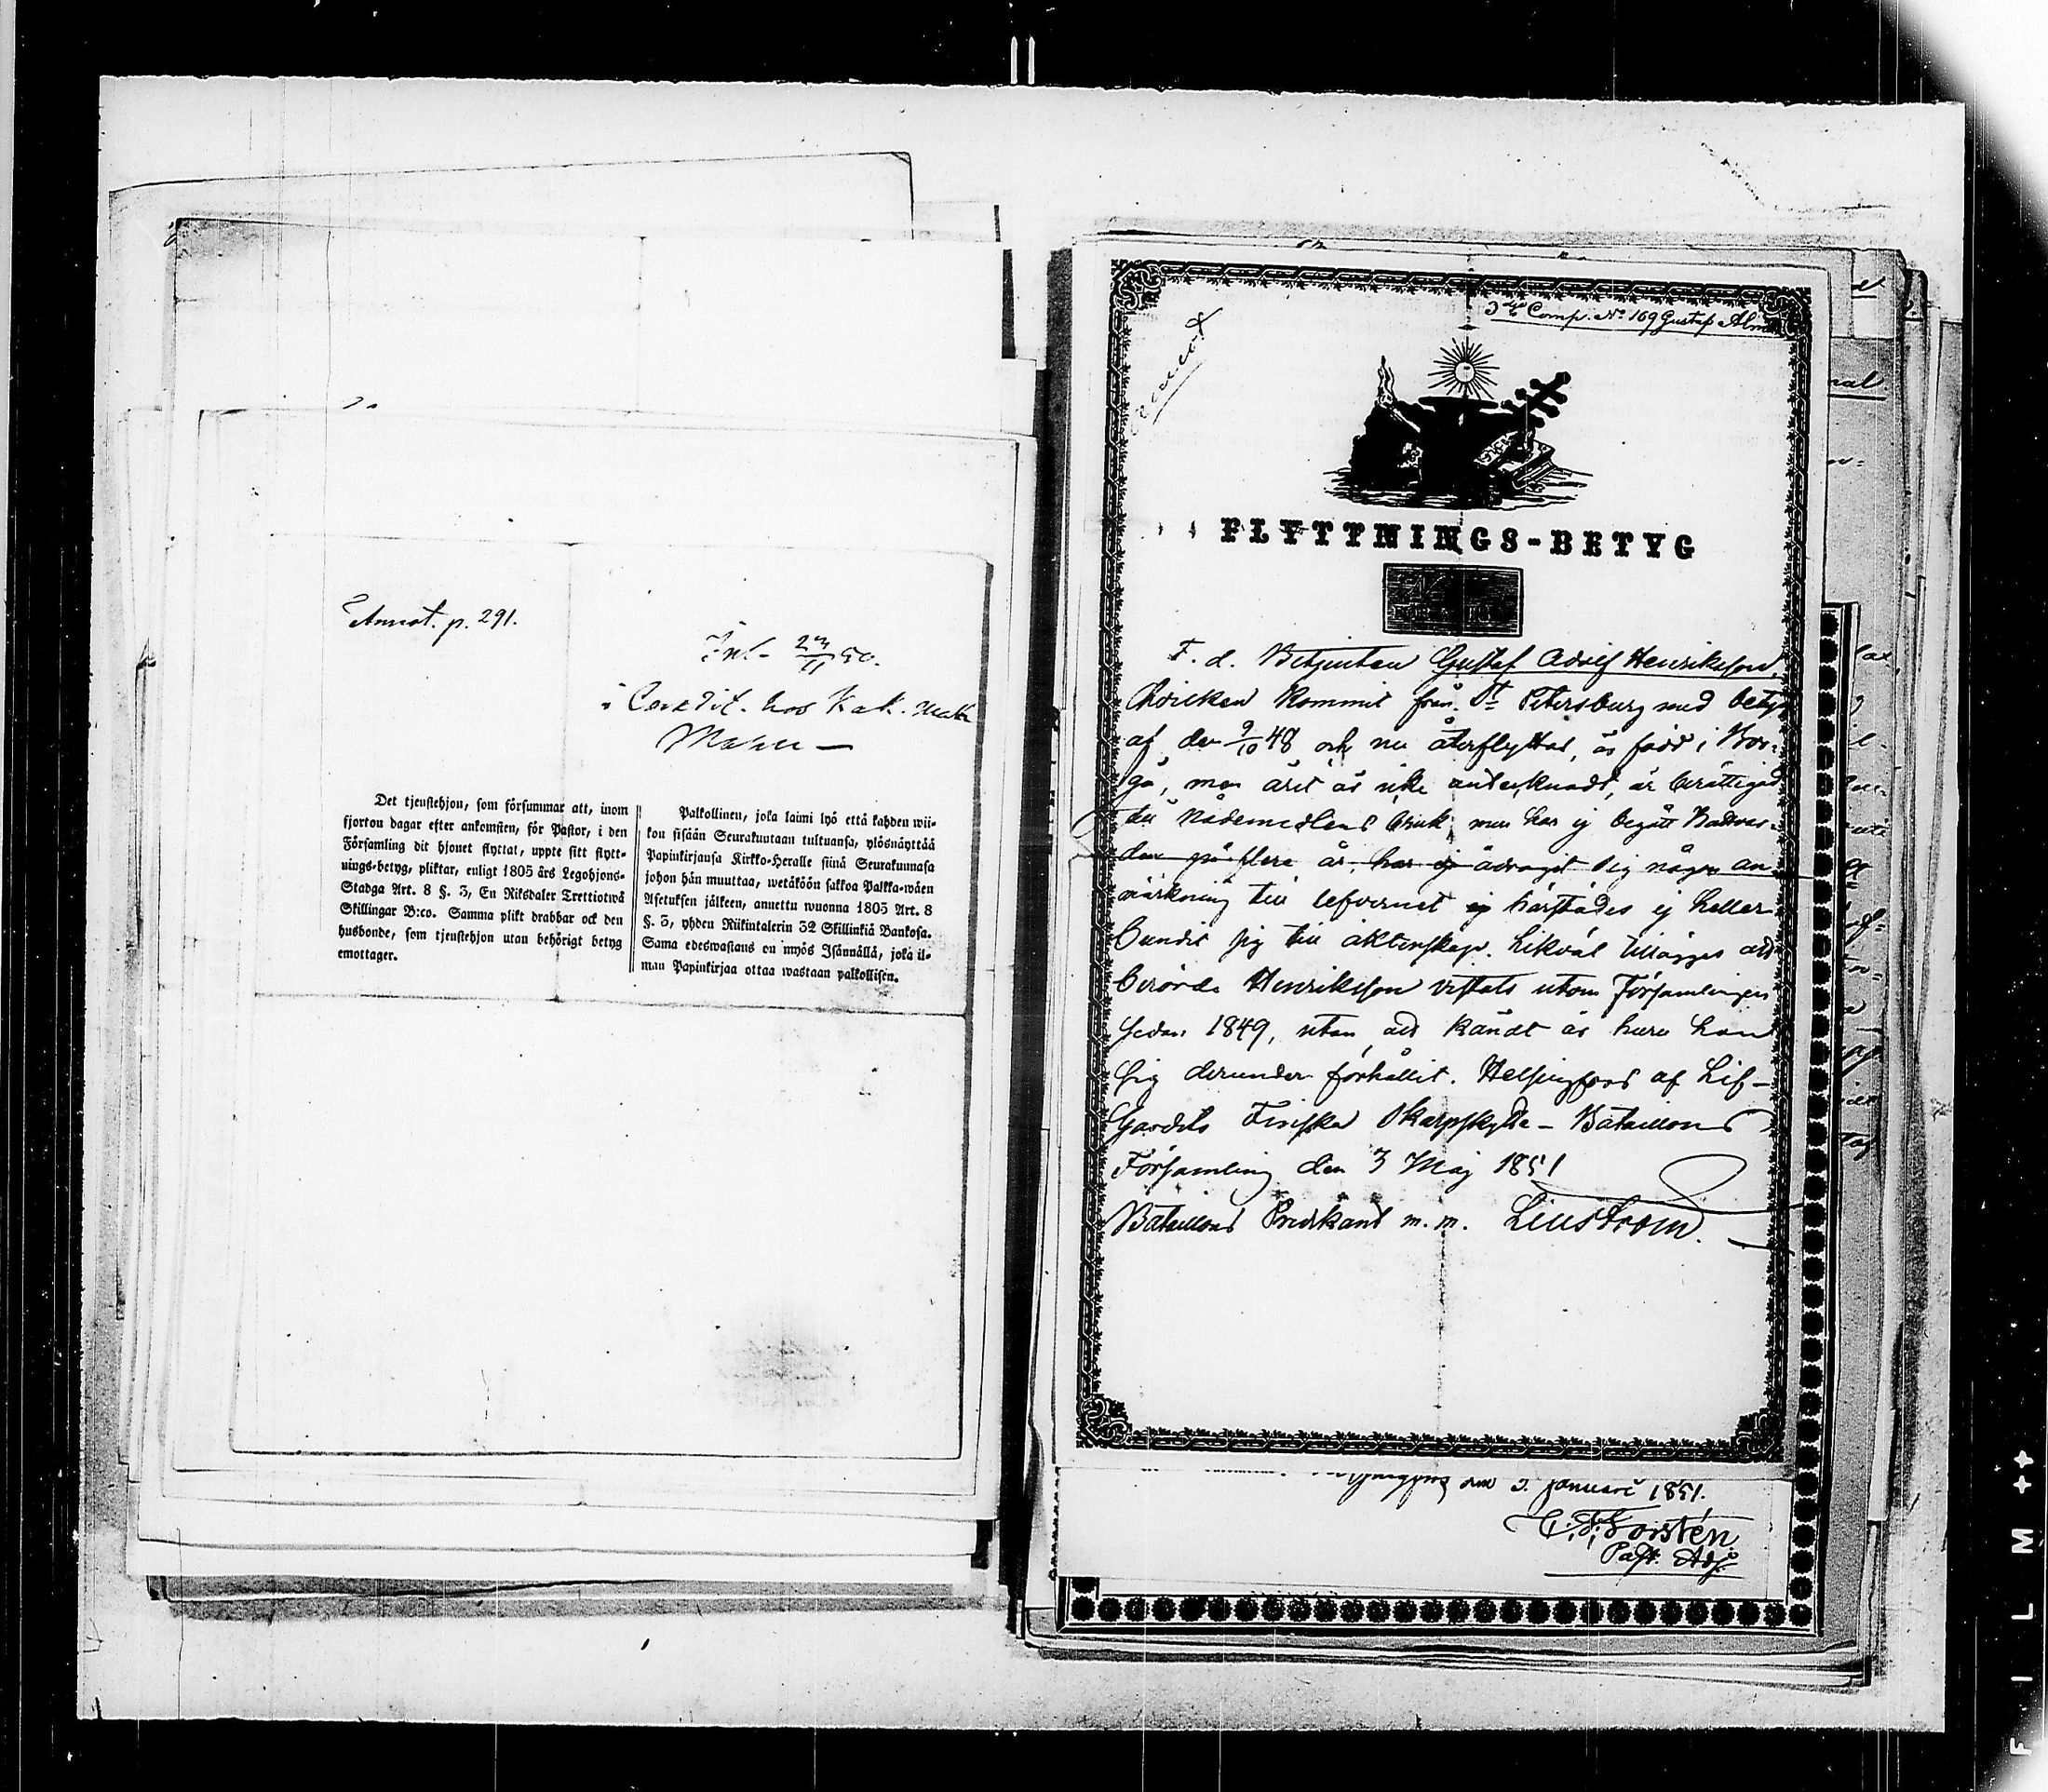 Annot. p. 291.
Inl. 23/11 50.
i Condit. hos Kak. mak.
Det tjenstehjon, som försummar att, inom
fjorton dagar efter ankomsten, för Pastor, i den
Församling dit hjonet flyttat, uppte sitt flytt-
nings-betyg, pliktar, enligt 1805 års Legohjons-
Stadga Art. 8 §. 3, En Riksdaler Trettiotwå
Skillingar B:co. Samma plikt drabbar ock den
husbonde, som tjenstehjon utan behörigt betyg
emottager.
Palkollinen, joka laimi lyö että kahden wii-
kon sisään Seurakuntaan tultuansa, ylösnäyttää
Papinkirjansa Kirkko-Herralle siinä Seurakunnasa
johon hän muuttaa, wetäköön sakkoa Palkka-wäen
Asetuksen jälkeen, annettu wuonna 1805 Art. 8
§. 3, yhden Riikintalerin 32 Skillinkiä Bankosa.
Sama edeswastaus on myös Isännällä, joka il-
man Papinkirjaa ottaa wastaan palkollisen.
3dje Comp. No 169 Gustaf Alm
Annot
FLYTTNINGS-BETYG
F. d. Betjenten Gustaf Adolf Henriksson,
hvilken kommit från St Petersburg med betyg
af den 9/10 48 och nu återflyttar, är född i Bor-
gå, men året är icke antecknadt, är berättigad
till nådemedlens bruk men har ej begått Nattvar-
den på flere år, har ej ådragit sig någon an-
märkning till lefvernet ej härstädes ej heller
bundit sig till äktenskap. Likväl tillägges att
berörde Henriksson vistats utom Församlingen
sedan 1849, utan att kändt är huru han
sig derunder förhållit. Helsingfors af Lif-
Gardets Finska Skarpskytte-Bataillons
Församling den 3 Maj 1851
Bataillons Predikant m. m. Liliström.
Helsingfors den 3. januari 1851.
C. F. Forstén
Past. Adj.
FILM ++